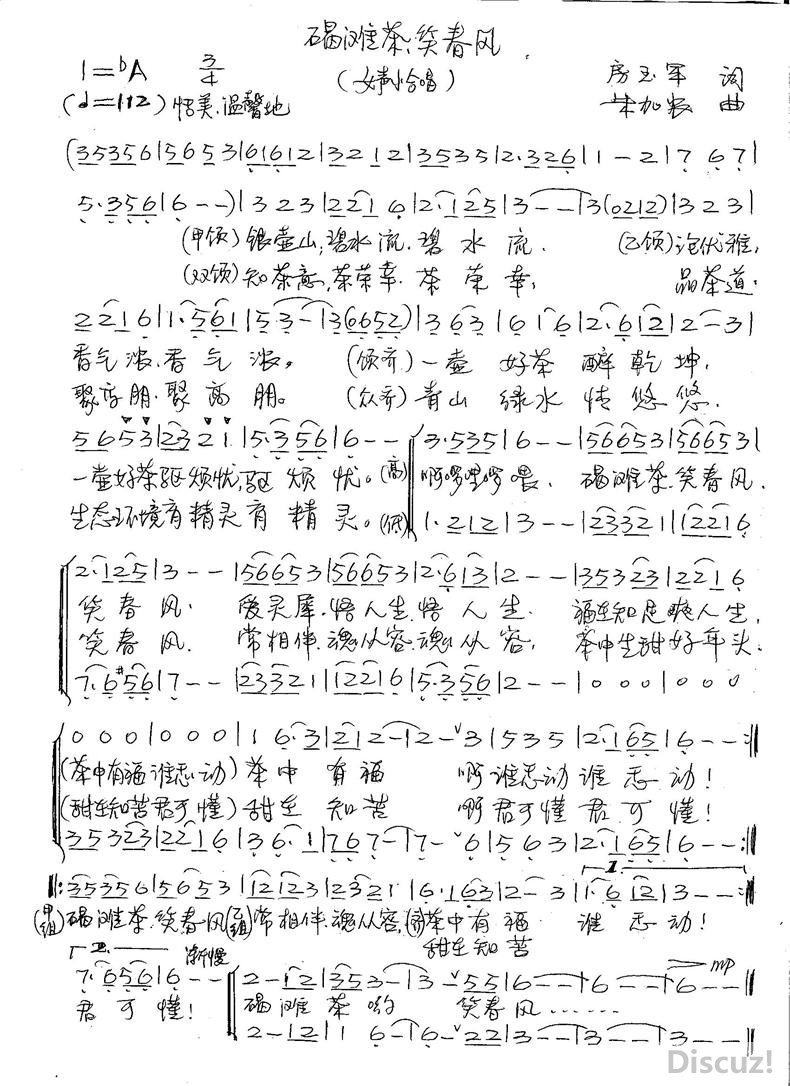 碣滩茶、笑春风
1=bA 3/4 (女声小合唱) 房玉军 词
(♩=112) 恬美、温馨地 加农 曲
(353561|56053|61612|32 12|35535|2·326|1-2|7 67|
5·356|6--)|323|2216|2·125|3--|3(0212)|323|
(甲领)银壶山,碧水流.碧水流. (乙领)论优雅,
(双领)知茶意,茶荣幸.茶荣幸, 品茶道.
2216|1·561|5·3-|3(0652)|363|616|2·612|2-3|
香气浓.香气浓。 (领齐)一壶好茶醉乾坤,
聚高朋.聚高朋。 (众齐)青山绿水情悠悠.
5653|2321|5·356|6--|3·535|6--|56653|56653|
一壶好茶驱烦忧,驱烦忧。(高)啊啰哩啰喂、碣滩茶.笑春风.
生态环境育精灵育精灵。(低)1·212|3--|23321|12216
2·125|3--|56653|56653|2·613|2--|35323|2216
笑春风. 爱灵犀.悟人生.悟人生. 福在知足映人生,
笑春风. 常相伴.魂从容.魂从容, 茶中生甜好年头.
7·6#56|7--|23321|12216|5·356|2--|000|000
000|000|16·3|212-|2-3|535|2·165|6--:||
(茶中有福谁忘动)茶中有福 啊谁忘动谁忘动!
(甜在知苦君可懂)甜在知苦 啊君可懂君可懂!
35323|2216|36·1|767-|7-6|563|2·165|6--:||
||:35356|56053|12123|2321|6·163|2-3|1·612|3--:||
(甲组)碣滩茶.笑春风(乙组)常相伴.魂从容,(齐)茶中有福 谁忘动!
甜在知苦
2. 渐慢 mp
7·656|6--|2-12|353-|3-55|6--|6--|6--||
君可懂! 碣滩茶哟 笑春风……
2-12|16-|6-22|3--|3--|3--||
Discuz!